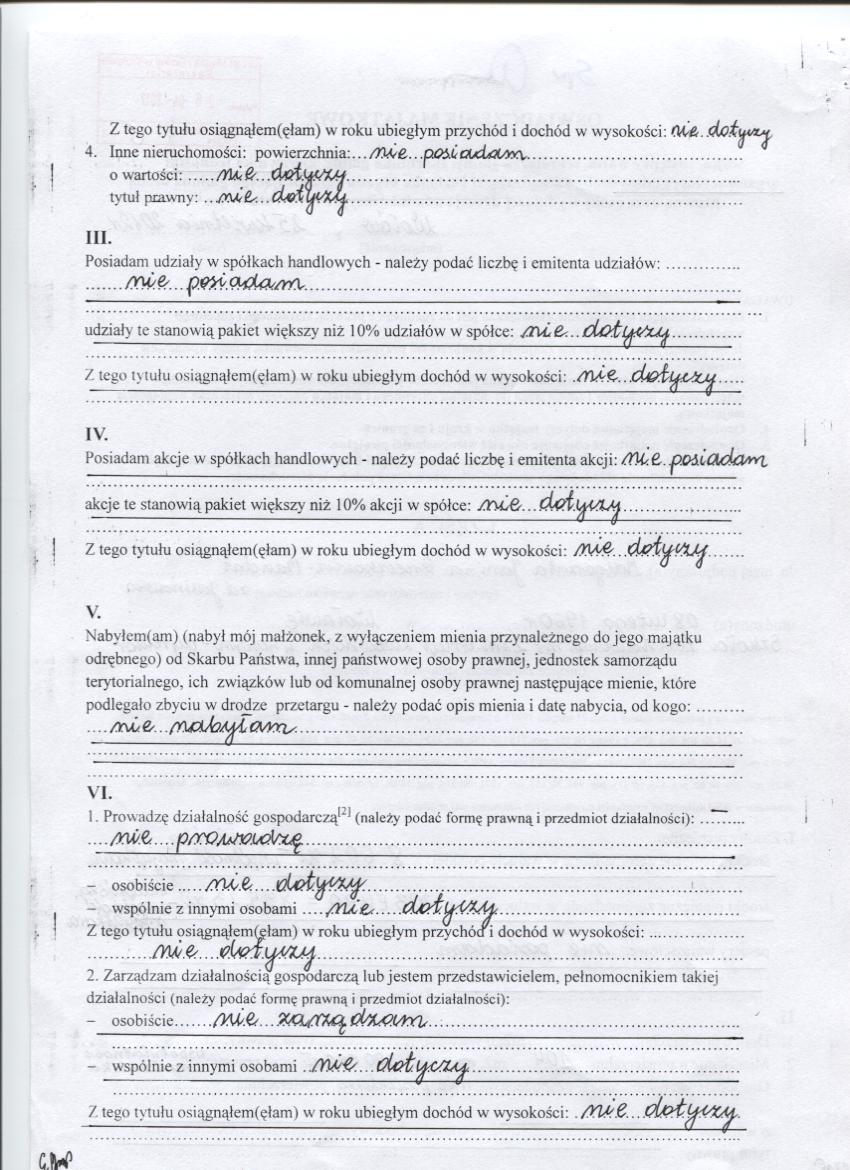 Z tego tytułu osiągnąłem(ęłam) w roku ubiegłym przychód i dochód w wysokości: nie dotyczy
4. Inne nieruchomości: powierzchnia:...nie posiadam
o wartości: nie dotyczy
tytuł prawny: nie dotyczy
III.
Posiadam udziały w spółkach handlowych - należy podać liczbę i emitenta udziałów:
nie posiadam
udziały te stanowią pakiet większy niż 10% udziałów w spółce: nie dotyczy
Z tego tytułu osiągnąłem(ęłam) w roku ubiegłym dochód w wysokości: nie dotyczy
IV.
Posiadam akcje w spółkach handlowych - należy podać liczbę i emitenta akcji: nie posiadam
akcje te stanowią pakiet większy niż 10% akcji w spółce: nie dotyczy
Z tego tytułu osiągnąłem(ęłam) w roku ubiegłym dochód w wysokości: nie dotyczy
V.
Nabyłem(am) (nabył mój małżonek, z wyłączeniem mienia przynależnego do jego majątku
odrębnego) od Skarbu Państwa, innej państwowej osoby prawnej, jednostek samorządu
terytorialnego, ich związków lub od komunalnej osoby prawnej następujące mienie, które
podlegało zbyciu w drodze przetargu - należy podać opis mienia i datę nabycia, od kogo:
nie nabyłam
VI.
1. Prowadzę działalność gospodarczą[2] (należy podać formę prawną i przedmiot działalności):
nie prowadzę
– osobiście nie dotyczy
– wspólnie z innymi osobami nie dotyczy
Z tego tytułu osiągnąłem(ęłam) w roku ubiegłym przychód i dochód w wysokości:
nie dotyczy
2. Zarządzam działalnością gospodarczą lub jestem przedstawicielem, pełnomocnikiem takiej
działalności (należy podać formę prawną i przedmiot działalności):
– osobiście nie zarządzam
– wspólnie z innymi osobami nie dotyczy
Z tego tytułu osiągnąłem(ęłam) w roku ubiegłym dochód w wysokości: nie dotyczy